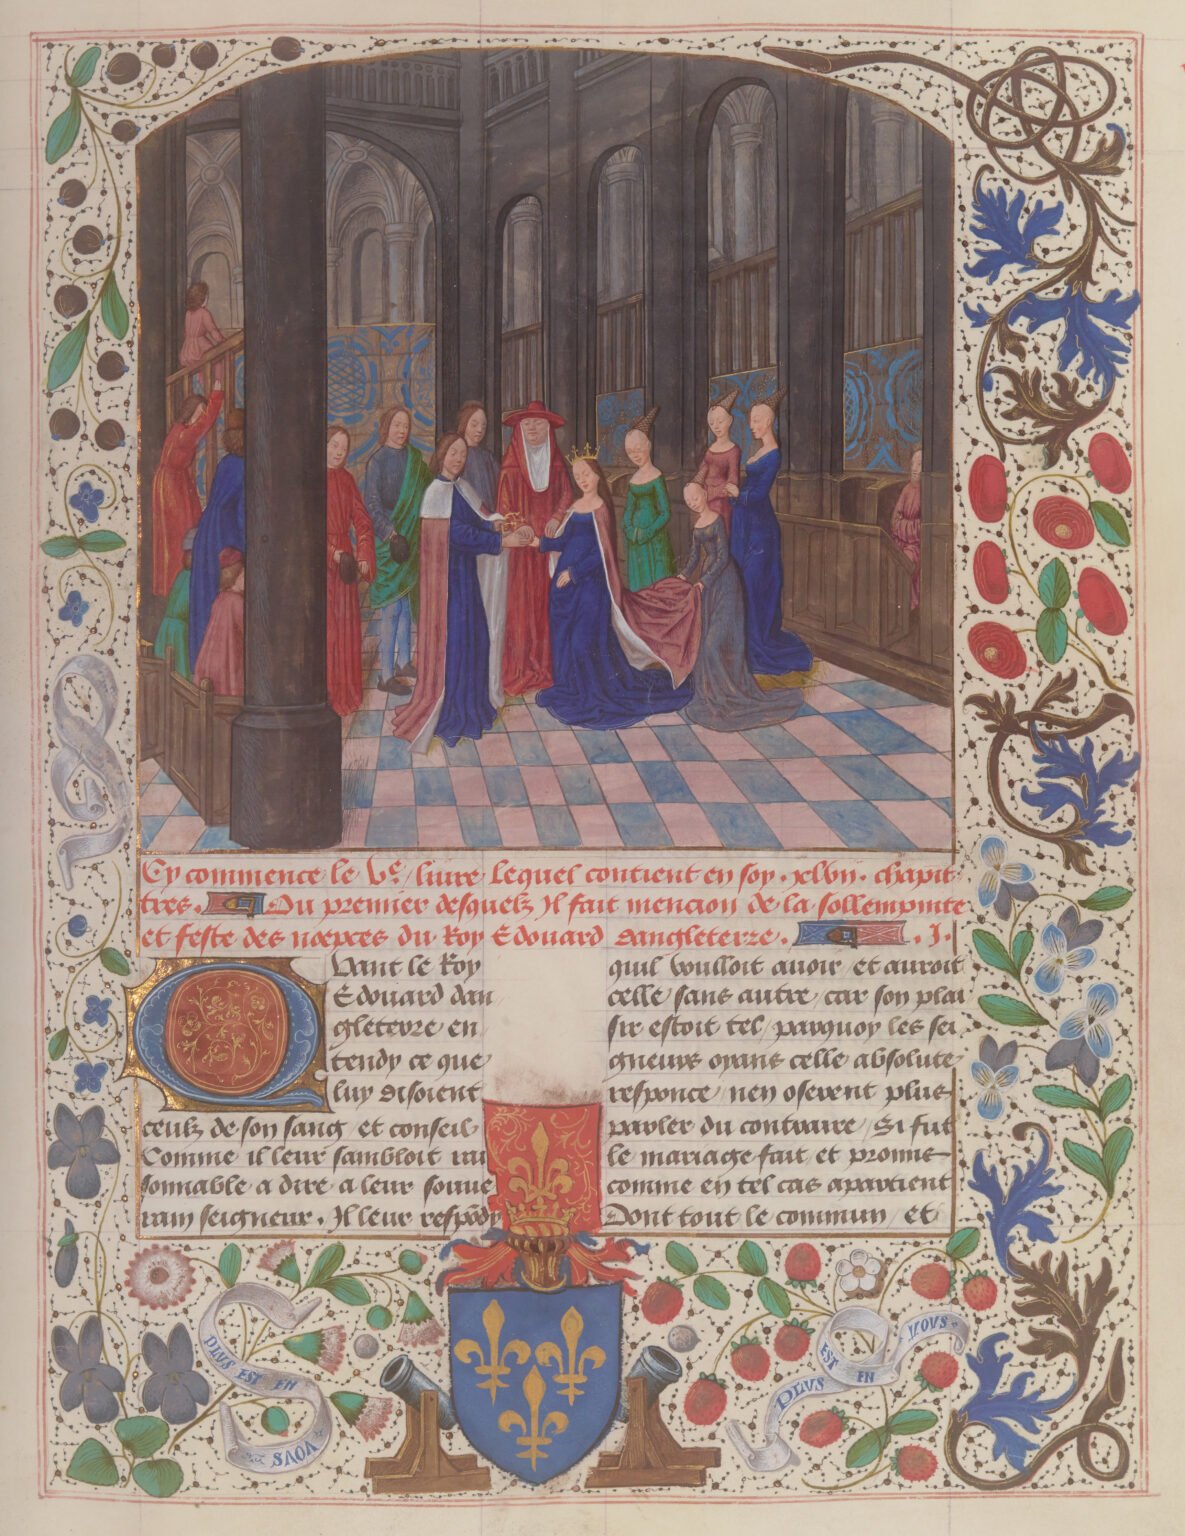 Cy commence le Ve. liure Lequel contient en soy . xlvii . chapit
tres . Du premier desquelz Il fait mencion de la sollempnite
et feste des nœpces du Roy Edouard dangleterre . I .
Quant le Roy
Edouard dan
gleterre en
tendy ce que
luy disoient
ceulz de son sang et conseil
Comme il leur sambloit rai
sonnable a dire a leur souue
rain seigneur . Il leur respondy
quil voulloit auoir et auroit
celle sans autre, car son plai
sir estoit tel, parquoy les sei
gneurs oyans celle absolute
responce, nen oserent plus
parler du contraire, Si fut
le mariage fait et promis
comme en tel cas apartient
Dont tout le commun, et
PLVS EST EN VOVS
PLVS EST EN VOVS